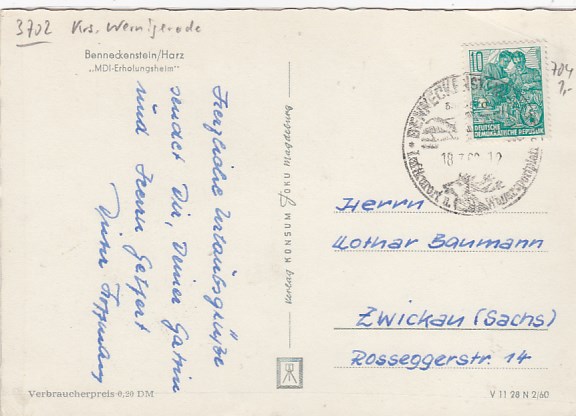 3702 Krs. Wernigerode
Benneckenstein/Harz
„MDI-Erholungsheim"
Herzliche Urlaubsgrüße
sendet Dir, Deiner Gattin
und Herrn Geißert
Verbraucherpreis 0,20 DM
Verlag KONSUM FOKO Magdeburg
10
DEUTSCHE
DEMOKRATISCHE REPUBLIK
704
1,-
BENNECKENSTEIN
18.7.60-12
Luftkurort u. Wintersportplatz
Herrn
Lothar Baumann
Zwickau (Sachs)
Rosseggerstr. 14
V 11 28 N 2/60